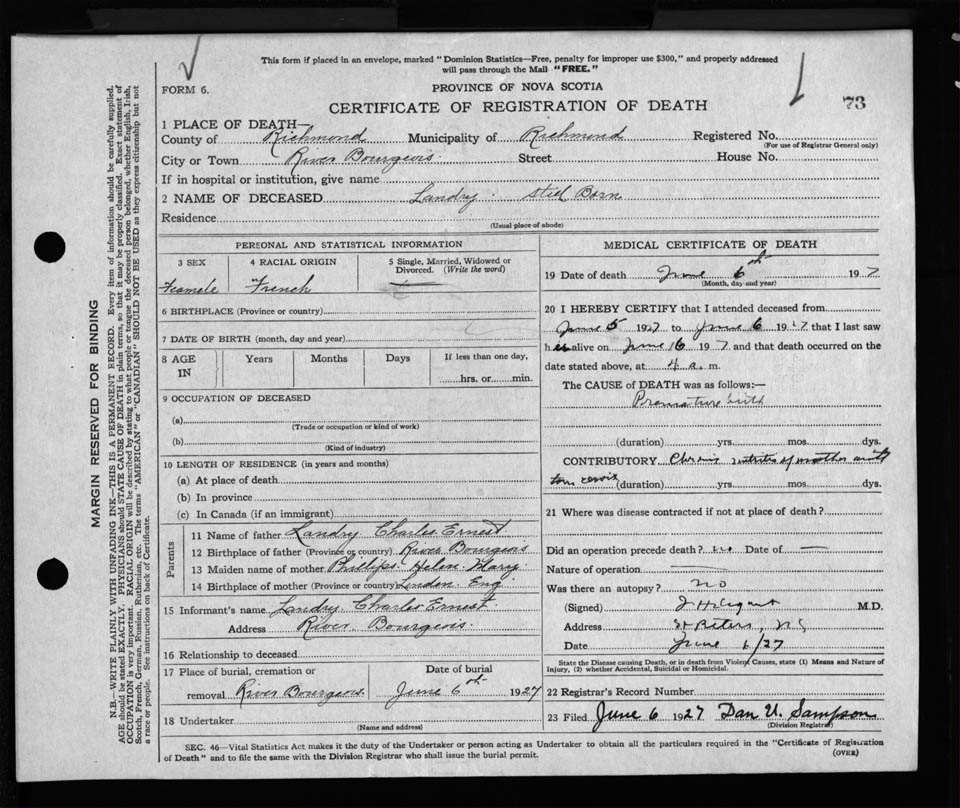 This form if placed in an envelope, marked "Dominion Statistics—Free, penalty for improper use $300," and properly addressed
will pass through the Mail "FREE."
FORM 6.
PROVINCE OF NOVA SCOTIA
CERTIFICATE OF REGISTRATION OF DEATH
73
1 PLACE OF DEATH—
County of Richmond Municipality of Richmond Registered No.
(For use of Registrar General only)
City or Town River Bourgeois. Street House No.
If in hospital or institution, give name
2 NAME OF DECEASED Landry. Still Born
Residence
(Usual place of abode)
PERSONAL AND STATISTICAL INFORMATION
3 SEX
4 RACIAL ORIGIN
5 Single, Married, Widowed or
Divorced. (Write the word)
Feamele French
6 BIRTHPLACE (Province or country)
7 DATE OF BIRTH (month, day and year)
8 AGE
IN
Years Months Days
If less than one day,
hrs. or min.
9 OCCUPATION OF DECEASED
(a)
(Trade or occupation or kind of work)
(b)
(Kind of industry)
10 LENGTH OF RESIDENCE (in years and months)
(a) At place of death
(b) In province
(c) In Canada (if an immigrant)
Parents
11 Name of father Landry Charles Ernest
12 Birthplace of father (Province or country) River Bourgeois
13 Maiden name of mother Phillips. Helen. Mary.
14 Birthplace of mother (Province or country) London. Eng
15 Informant's name Landry. Charles Ernest.
Address River. Bourgeois.
16 Relationship to deceased
17 Place of burial, cremation or
Date of burial
removal River Bourgeois. June 6th 1927
18 Undertaker
(Name and address)
MEDICAL CERTIFICATE OF DEATH
19 Date of death June 6th 1927
(Month, day and year)
20 I HEREBY CERTIFY that I attended deceased from
June 5 1927 to June 6 1927 that I last saw
h alive on June 1927 and that death occurred on the
date stated above, at 4 a. m.
The CAUSE of DEATH was as follows:—
Premature birth
(duration) yrs. mos. dys.
CONTRIBUTORY of mother with
torn cervix (duration) yrs. mos. dys.
21 Where was disease contracted if not at place of death?
Did an operation precede death? no Date of —
Nature of operation —
Was there an autopsy? no
(Signed) M.D.
Address St Peters, N.S
Date June 6/27
State the Disease causing Death, or in death from Violent Causes, state (1) Means and Nature of
Injury, (2) whether Accidental, Suicidal or Homicidal.
22 Registrar's Record Number
23 Filed June 6 1927 Dan U. Sampson
(Division Registrar)
SEC. 46—Vital Statistics Act makes it the duty of the Undertaker or person acting as Undertaker to obtain all the particulars required in the "Certificate of Registration
of Death" and to file the same with the Division Registrar who shall issue the burial permit.
(OVER)
MARGIN RESERVED FOR BINDING
N.B.—WRITE PLAINLY WITH UNFADING INK—THIS IS A PERMANENT RECORD. Every item of information should be carefully supplied.
AGE should be stated EXACTLY. PHYSICIANS should STATE CAUSE OF DEATH in plain terms, so that it may be properly classified. Exact statement of
OCCUPATION is very important. RACIAL ORIGIN will be described by stating to what people or tongue the deceased person belonged, whether English, Irish,
Scotch, French, German, Russian, Ruthenian, etc. The terms "AMERICAN" or "CANADIAN" SHOULD NOT BE USED as they express citizenship but not
a race or people. See instructions on back of Certificate.